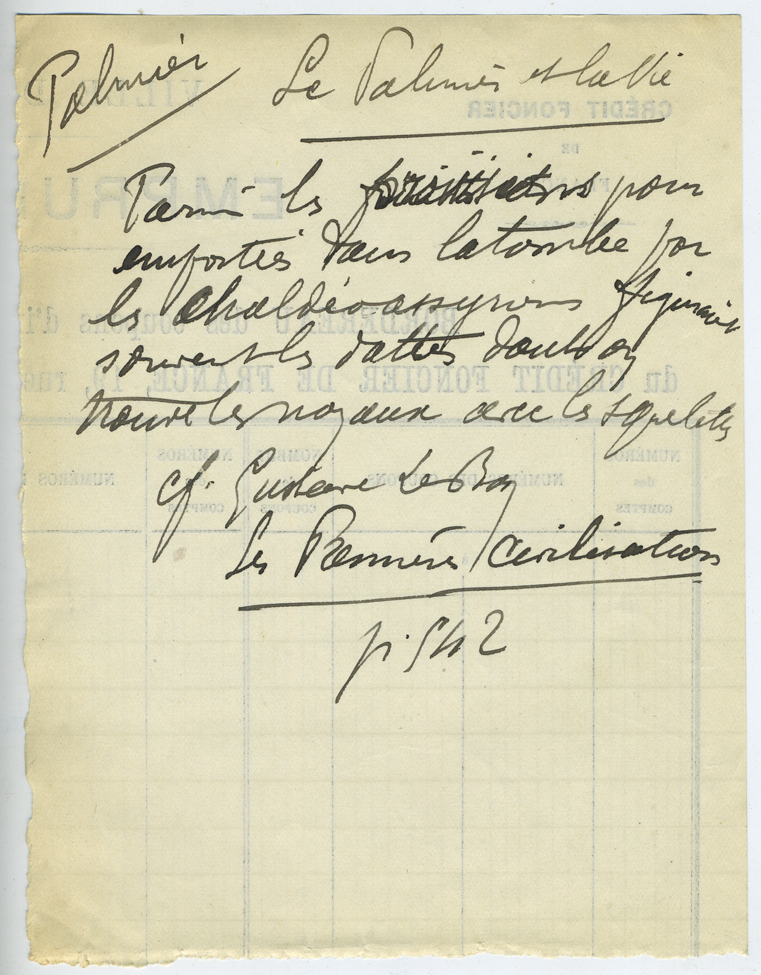 Palmier
Le Palmier et la Vie
Parmi les provisions pour
emportées dans la tombe par
les Chaldéo-assyriens figuraient
souvent les dattes dont on
trouve les noyaux avec les squelettes
cf. Gustave Le Bon
Les Premières civilisations
p. 542
VILLE
CRÉDIT FONCIER
DE
EMPRU
BORDEREAU des coupons d'i
du CRÉDIT FONCIER DE FRANCE, 19, rue
NUMÉROS
des
COMPTES
NUMÉROS DES COUPONS
NOMBRE
COUPONS
NUMÉROS
COMPTES
NUMÉROS